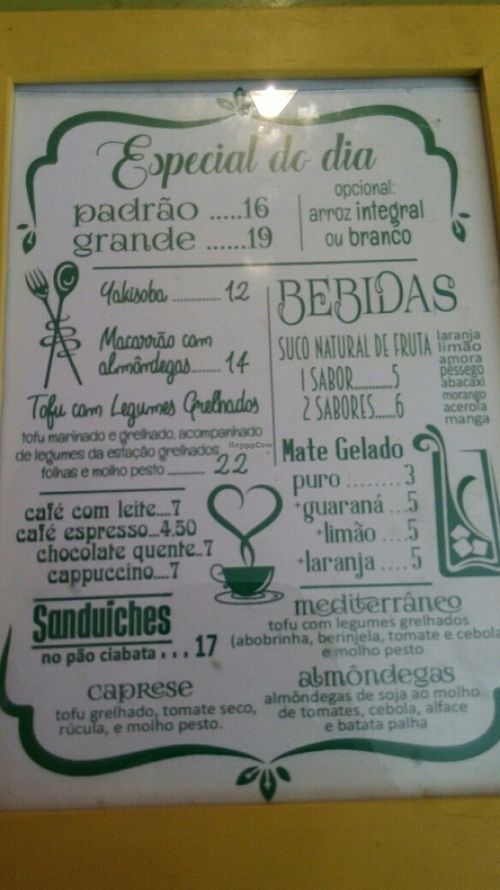 Especial do dia
padrão ......16
grande ......19
opcional:
arroz integral
ou branco
Yakisoba ............ 12
Macarrão com
almôndegas....... 14
Tofu com Legumes Grelhados
tofu marinado e grelhado, acompanhado
de legumes da estação grelhados,
folhas e molho pesto .......... 22
BEBIDAS
SUCO NATURAL DE FRUTA
1 SABOR..........5
2 SABORES.....6
laranja
limão
amora
pêssego
abacaxi
morango
acerola
manga
Mate Gelado
puro ........ 3
+guaraná . . 5
+limão . . . . 5
+laranja . . . . 5
café com leite....7
café espresso...4,50
chocolate quente..7
cappuccino....7
Sanduiches
no pão ciabata . . . 17
mediterrâneo
tofu com legumes grelhados
(abobrinha, berinjela, tomate e cebola
e molho pesto
caprese
tofu grelhado, tomate seco,
rúcula, e molho pesto.
almôndegas
almôndegas de soja ao molho
de tomates, cebola, alface
e batata palha
HappyCow